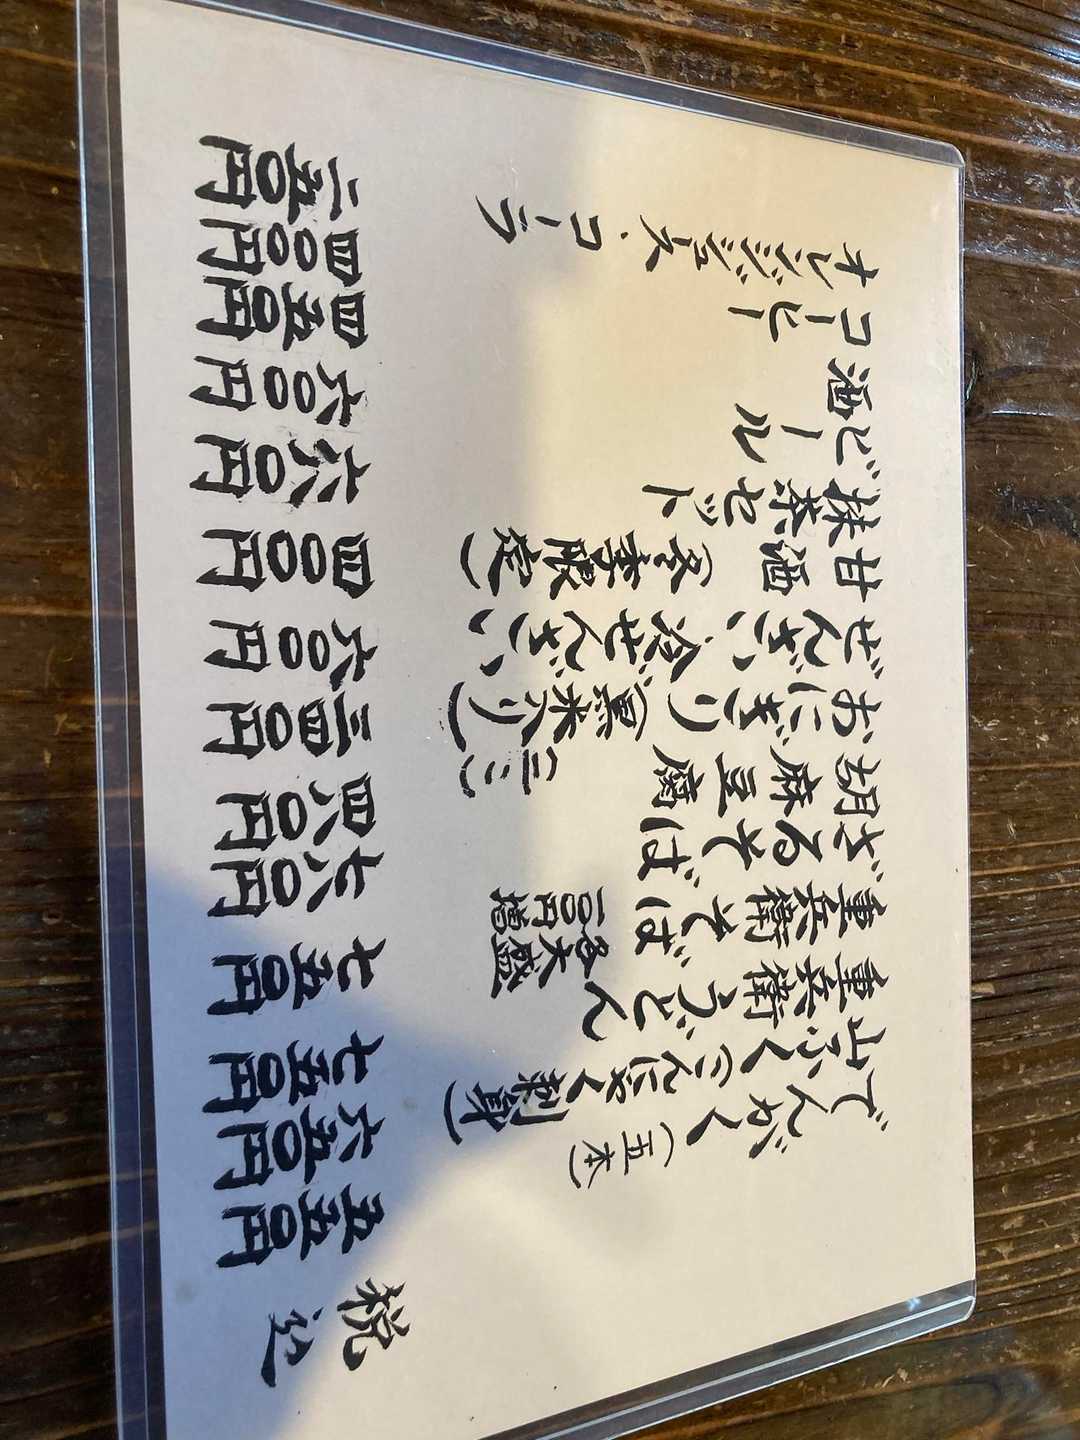 でんがく(五本) 五五〇円
山ふく(こんにゃく刺身) 六五〇円
重兵衛うどん 七五〇円
重兵衛そば 七五〇円
各大盛
一〇〇円増
ざるそば 七八〇円
胡麻豆腐 四八〇円
おにぎり(黒米入り)(二こ) 三四〇円
ぜんざい、冷ぜんざい 六〇〇円
甘酒(冬季限定) 四〇〇円
抹茶セット 六八〇円
ビール 六〇〇円
酒 四五〇円
コーヒー 四〇〇円
オレンジジュース・コーラ 二五〇円
税込